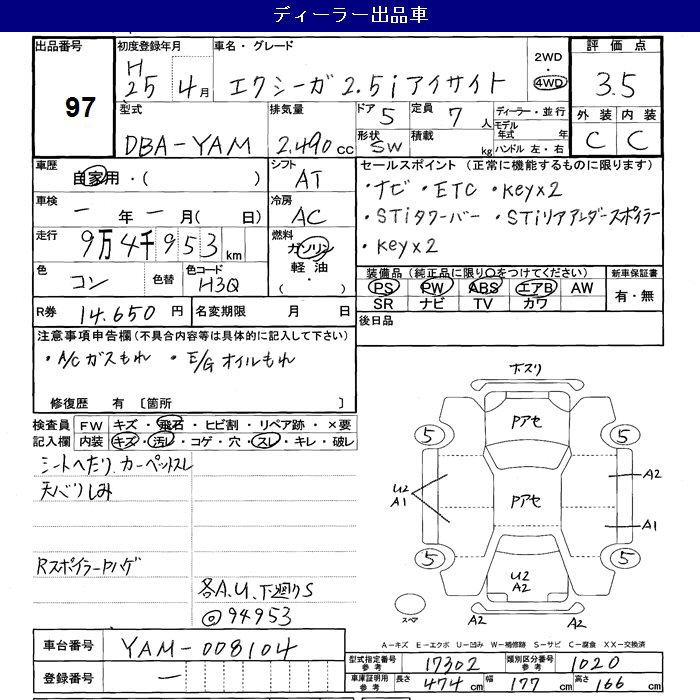 ディーラー出品車
出品番号 初度登録年月 車名・グレード 評価点
97 H25 4月 エクシーガ 2.5i アイサイト 2WD 4WD 3.5
型式 排気量 ドア 5 定員 7人 ディーラー・並行 外装 内装
DBA-YAM 2.490cc 形状 SW 積載 kg モデル年式 年 C C
ハンドル 左・右
車歴 自家用・( ) シフト AT セールスポイント (正常に機能するものに限ります)
・ナビ ・ETC ・Key×2
車検 ー年ー月( 日) 冷房 AC ・STiタワーバー ・STiリアアンダースポイラー
走行 9万4千953km 燃料 ガソリン ・Key×2
軽油
( ・ )
色 コン 色替 色コード H3Q 装備品 (純正品に限り○をつけてください) 新車保証書
PS PW ABS エアB AW 有・無
SR ナビ TV カワ
R券 14.650円 名変期限 月 日 後日品
注意事項申告欄(不具合内容等は具体的に記入して下さい)
・A/Cガスもれ ・E/Gオイルもれ
修復歴 有 〔箇所 〕
検査員 FW キズ・飛石・ヒビ割・リペア跡・×要
記入欄 内装 キズ・汚レ・コゲ・穴・スレ・キレ・破レ
シートヘたり、カーペットスレ
天ベリしみ
RスポイラーPハゲ
各A.U、下廻りS
◎94953
下スリ
Pアセ
5 5
U2 A1 Pアセ A2
A1
5 5
U2 A2
スペア A2 A2
A-キズ E-エクボ U-凹み W-補修跡 S-サビ C-腐食 XX-交換済
車台番号 YAM-008104
登録番号 ー
型式指定番号 参考 17302 類別区分番号 参考 1020
車庫証明用 参考 長さ 474cm 幅 177cm 高さ 166cm